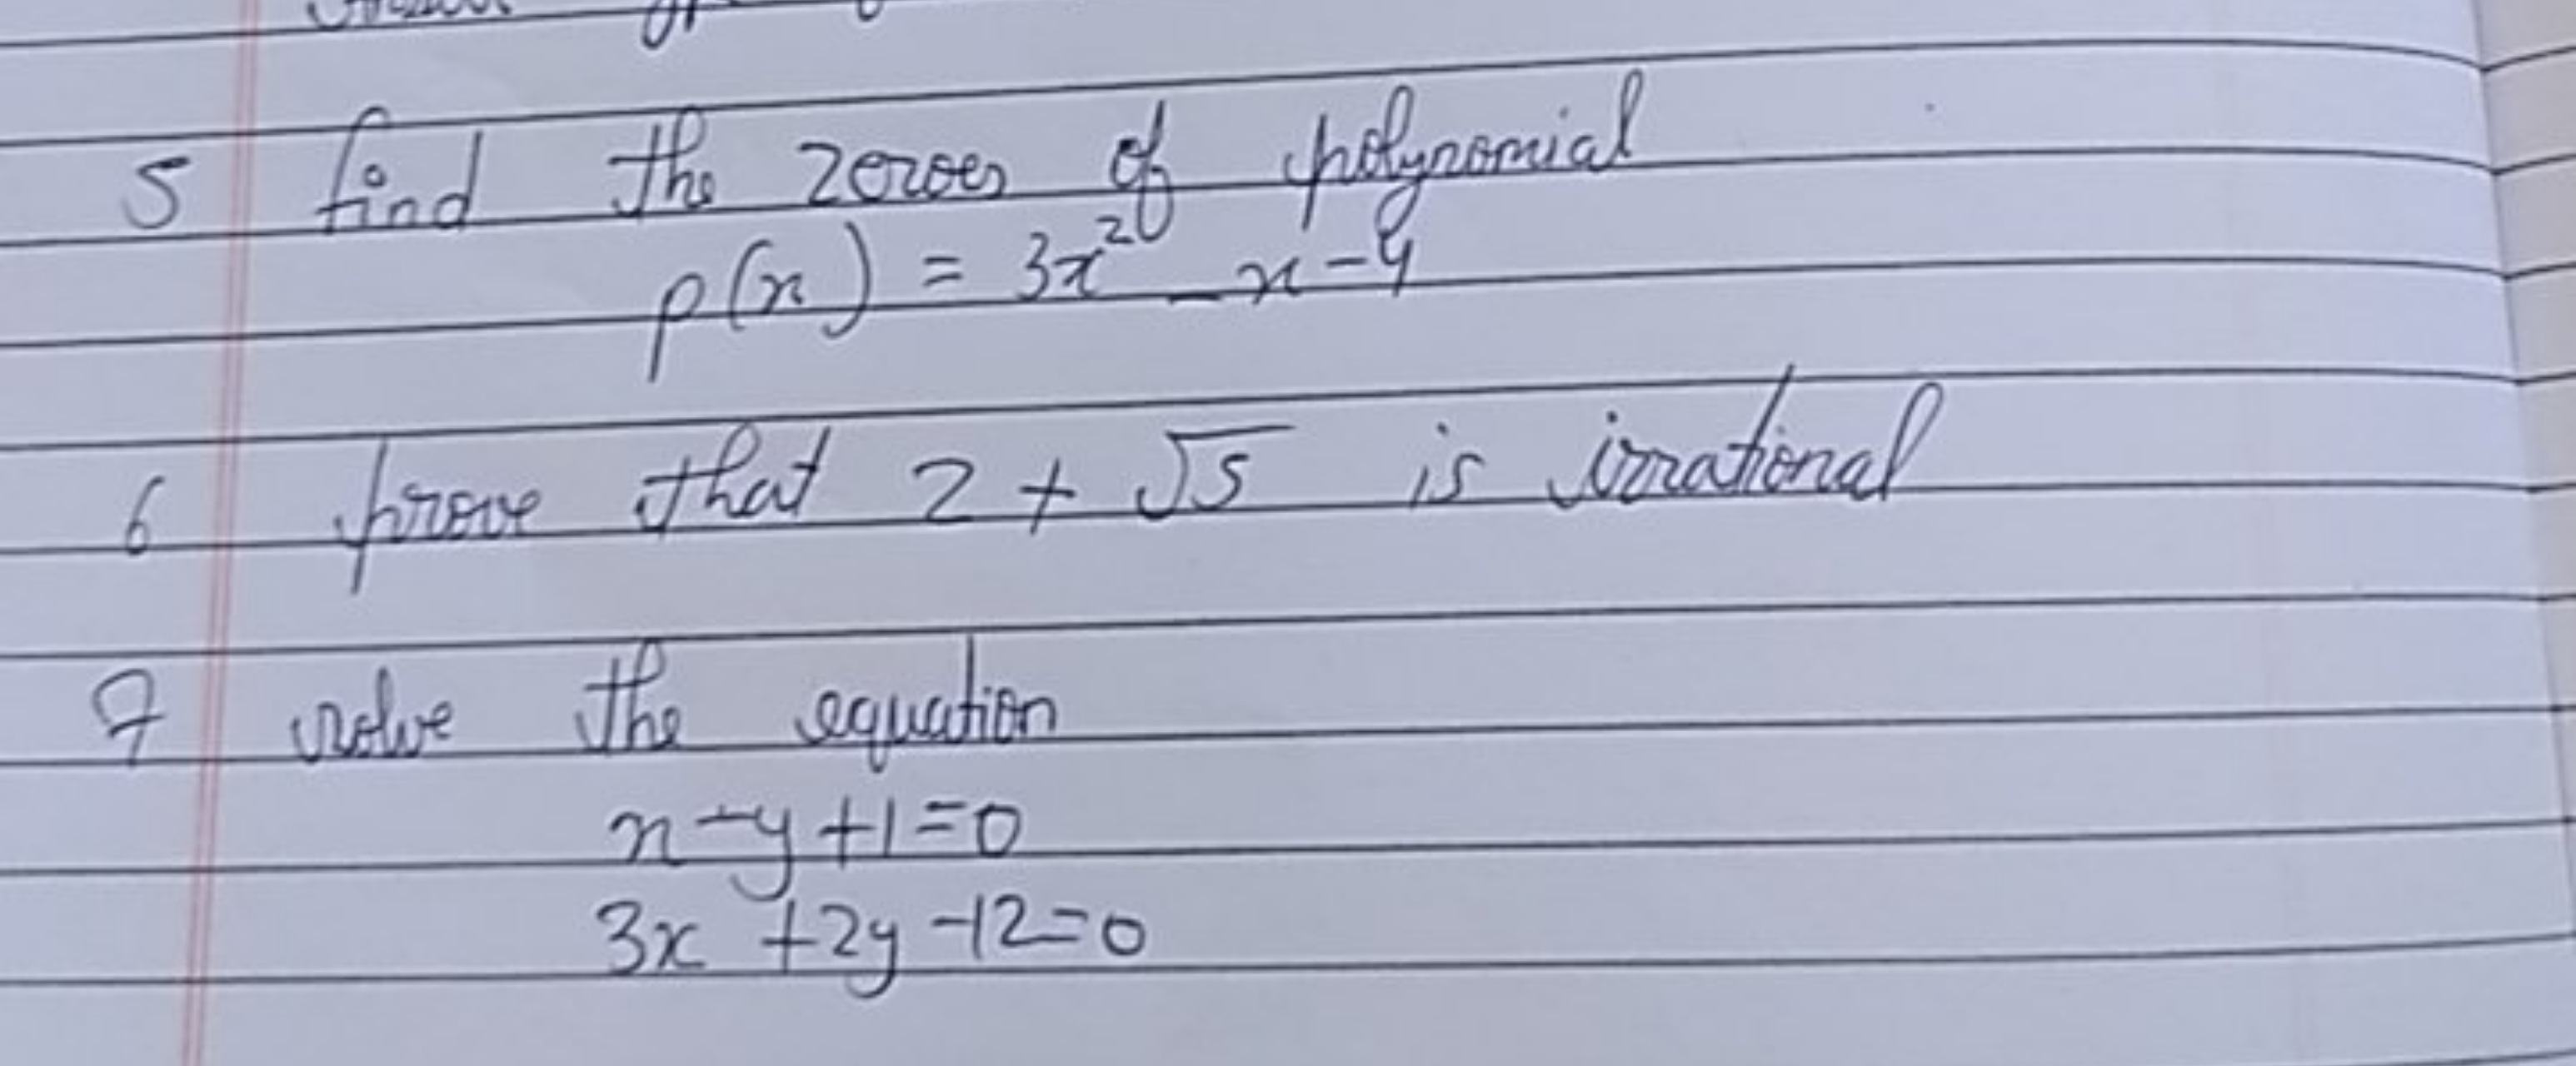 5 find the zeroes of polynomial
p(x) = 3x² - x - 4
6 prove that 2 + √5 is irrational
7 solve the equation
x - y + 1 = 0
3x + 2y - 12 = 0